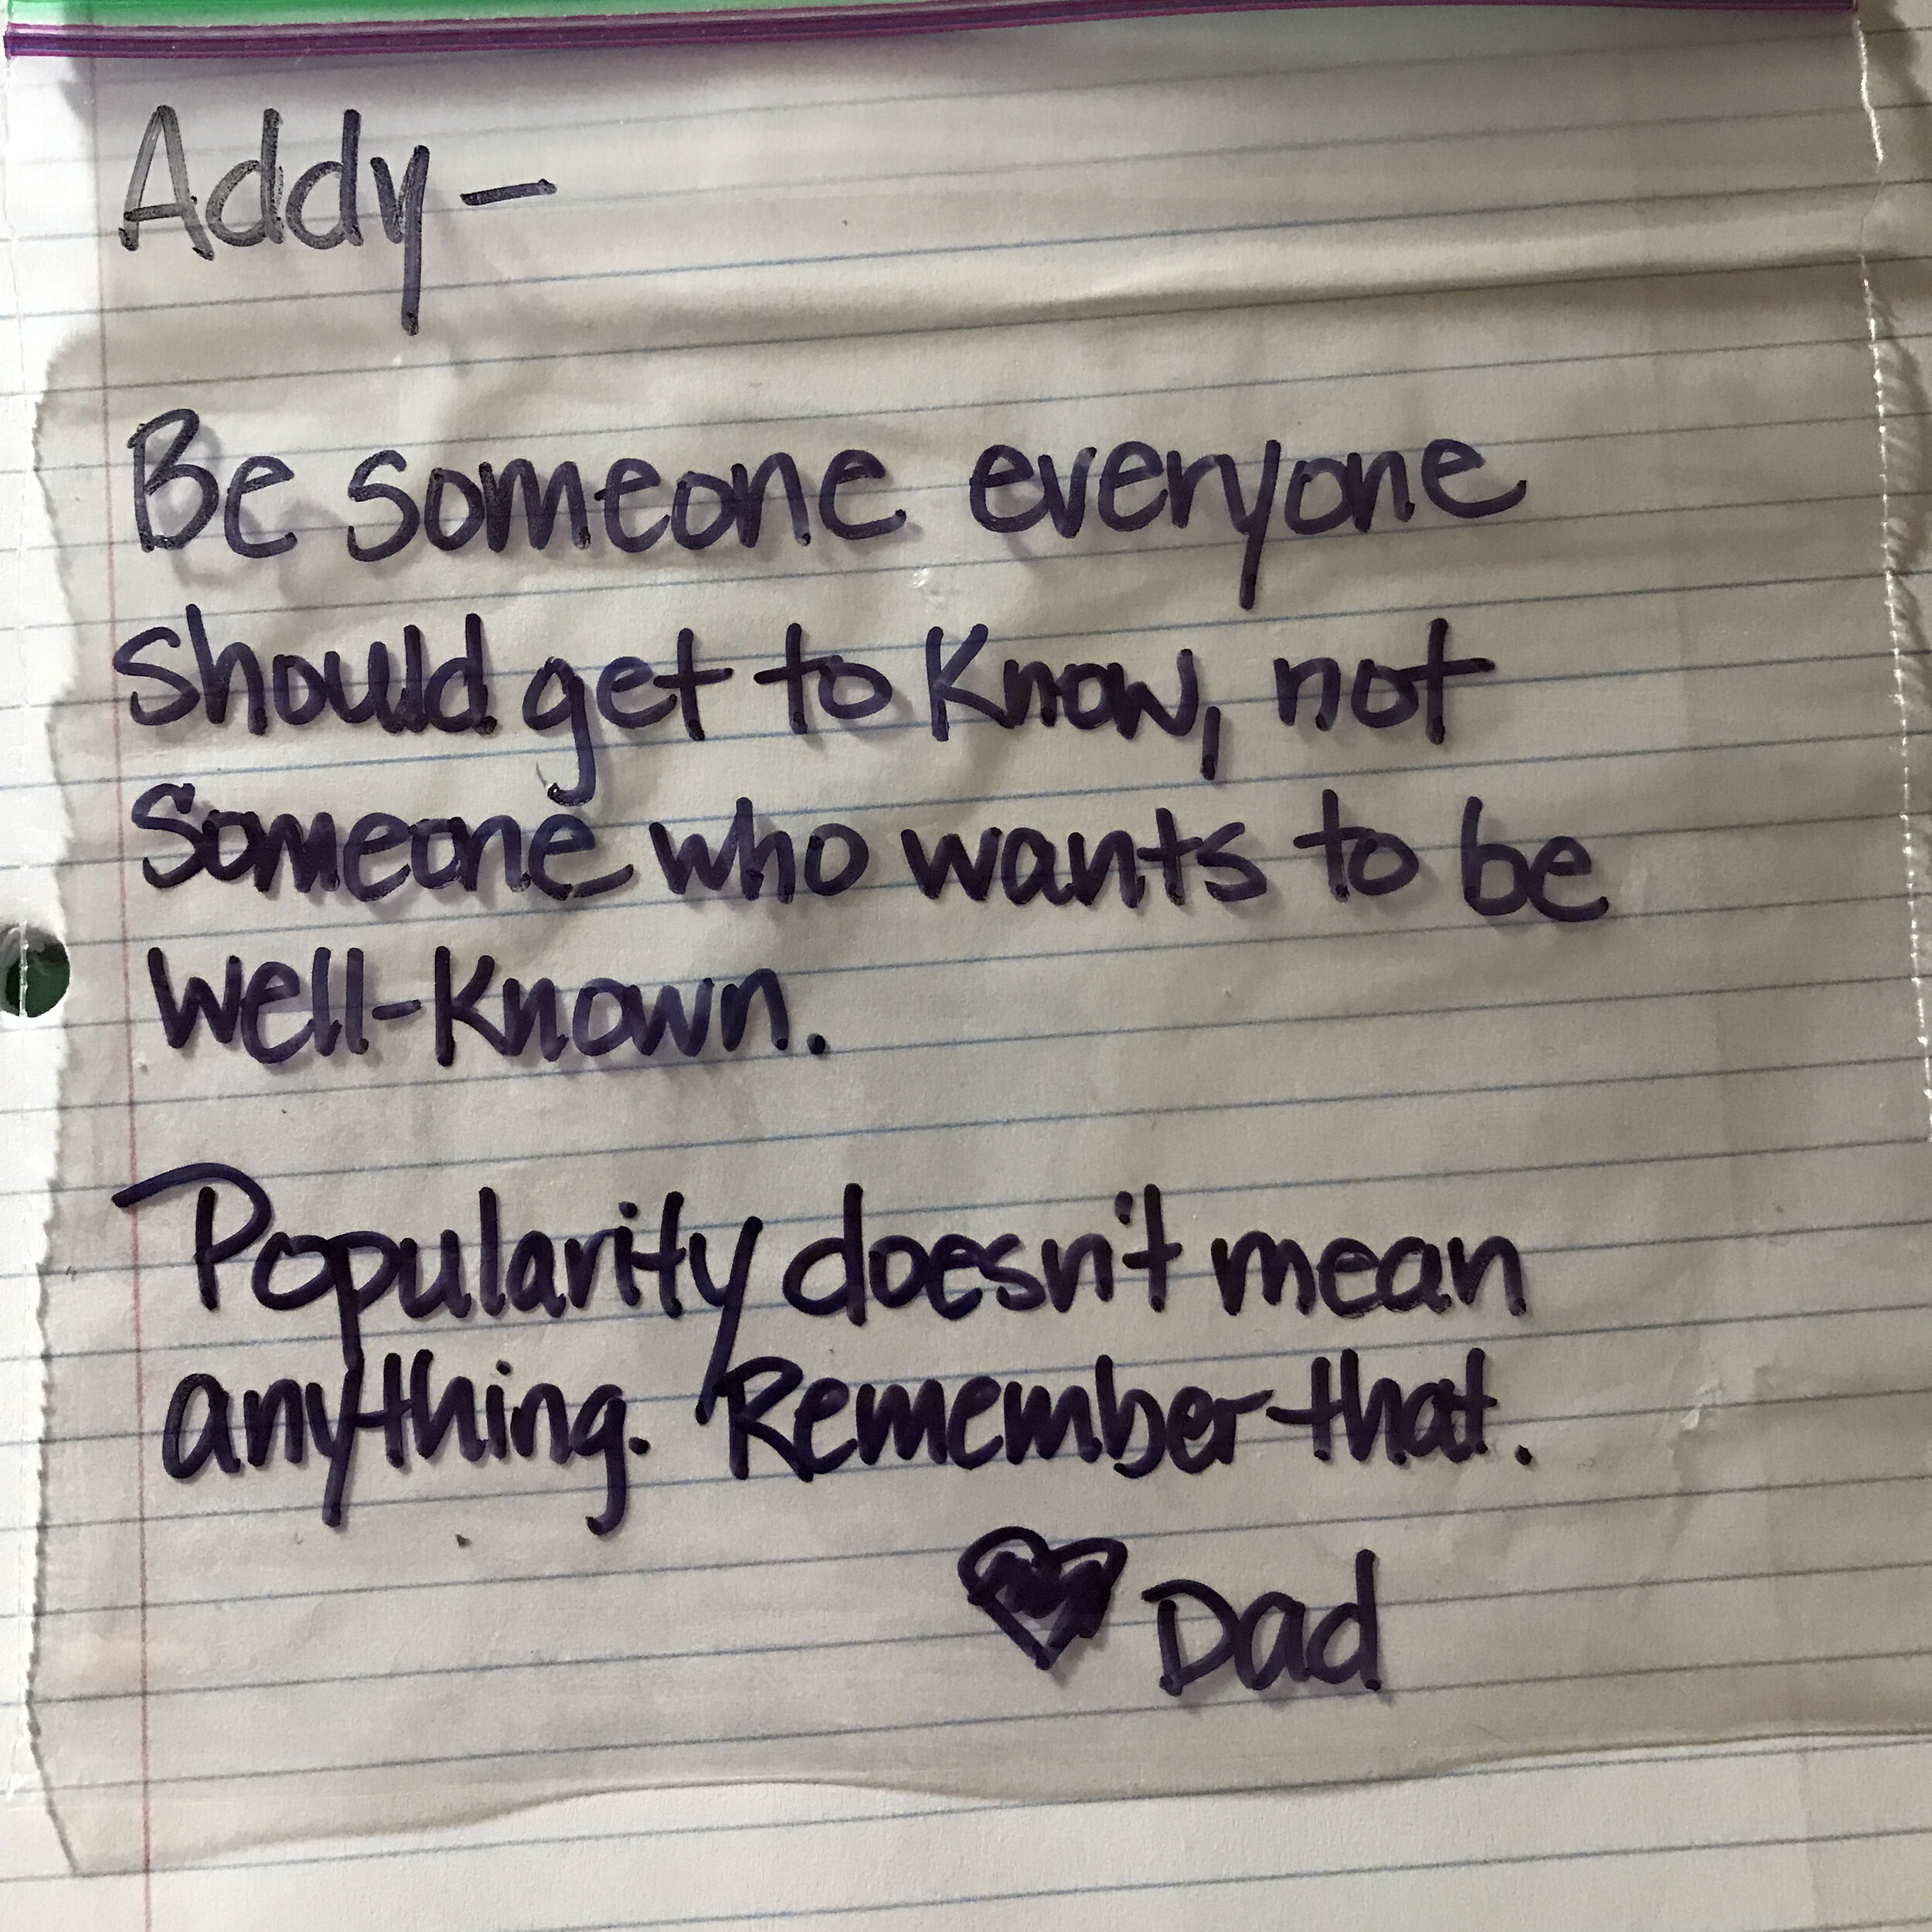 Addy -
Be someone everyone
should get to know, not
someone who wants to be
well-known.
Popularity doesn't mean
anything. Remember that.
♥ Dad